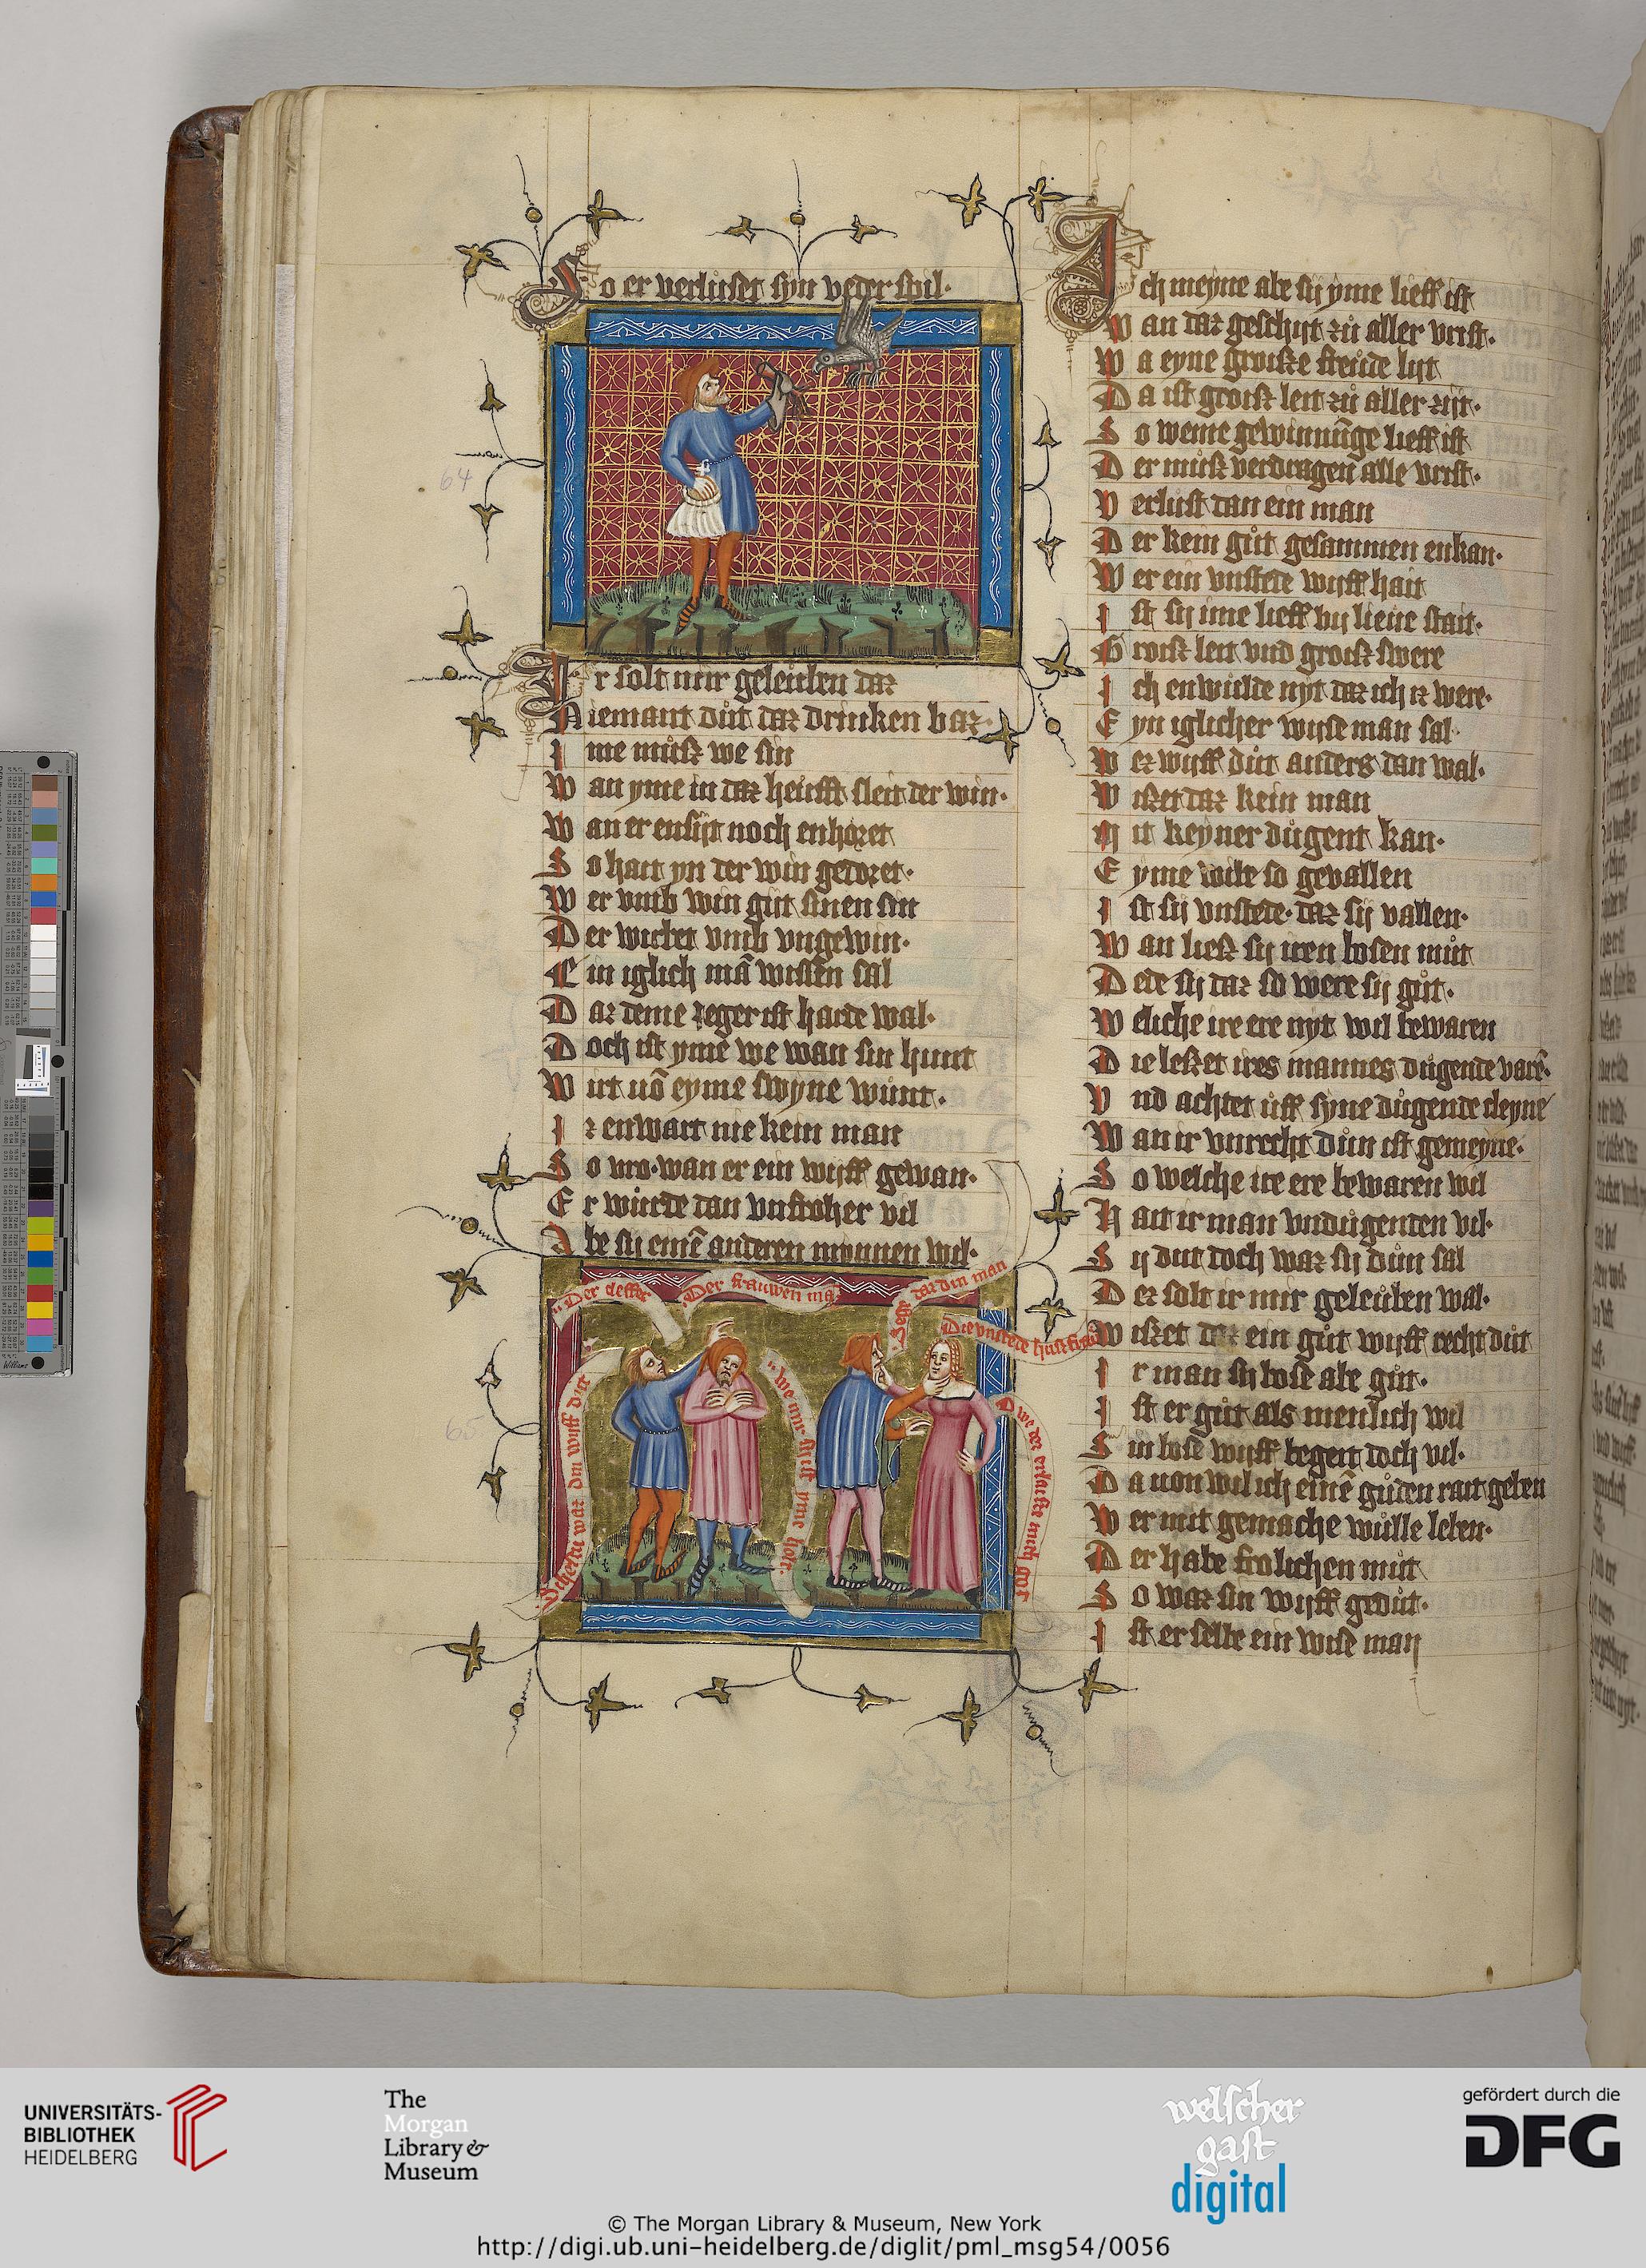 So er verluset syn veder spil·
Ir solt mir geleuben daz
Niemant dut daz drinken baz·
Ime muß we sin
Wan yme in daz heufft sleit der win·
Wan er ensijt noch enhoret
So hait yn der win gedoret·
Wer vmb win git sinen sin
Der wirbet vmb vngewin·
Ein iglich mā wissen sal
Daz deme jeger ist harte wal·
Doch ist yme we wan sin hunt
Wirt uō eyme swyne wunt·
Iz enwart nie kein man
So vro· wan er ein wyff gewan·
Er wurde dan vnfroher vil
Abe sij einē anderen mynnen wil·
Der cleffer
Der frauwen mā
Sich daz din man
Die vnstede husfrau
Sehestu waz din wiff dut
We mir hilt yme holt
O we der
64
65
Ich meyne abe sij yme lieff ist
Wan daz geschijt zu aller vrist·
Wa eyne groiße freude lijt
Da ist groiß leit zu aller zijt·
So weme gewinnūge lieff ist
Der muß verdragen alle vrist·
Verlust dan ein man
Der kein gut gesammen enkan·
Wer ein vnstede wijff hait
Ist sij ime lieff by lieue stait·
Groiß leit vnd groiß swere
Ich enwulde nyt daz ich iz were·
Eyn iglicher wyse man sal
Wez wyff dut anders dan wal·
Wißet daz kein man
Mit keyner dugent kan·
Eyme wibe so gevallen
Ist sij vnstede· daz sij vallen·
Wan ließ sij iren bosen mut
Dede sij daz so were sij gut·
Weliche ire ere nyt wil bewaren
Die leßet ires mannes dugende varē·
Vnd achtet uff syne dugende cleyne
Wan ir vnrecht dun ist gemeyne·
So welche ire ere bewaren wil
Hait ir man vndugenden vil·
Sij dut doch waz sij dun sal
Dez solt ir mir geleuben wal·
Wißet daz ein gut wijff recht dut
Ir man sy bose abe gut·
Ist er gut als menlich wil
Sin bose wyff begert doch vil·
Da uon wil ich einē guden rait geben
Wer mit gemache wulle leben·
Der habe frolichen mut
So waz sin wyff gedut·
Ist er selbe ein wise man
UNIVERSITÄTS-
BIBLIOTHEK
HEIDELBERG
The
Morgan
Library &
Museum
welscher
gast
digital
gefördert durch die
DFG
© The Morgan Library & Museum, New York
http://digi.ub.uni-heidelberg.de/diglit/pml_msg54/0056